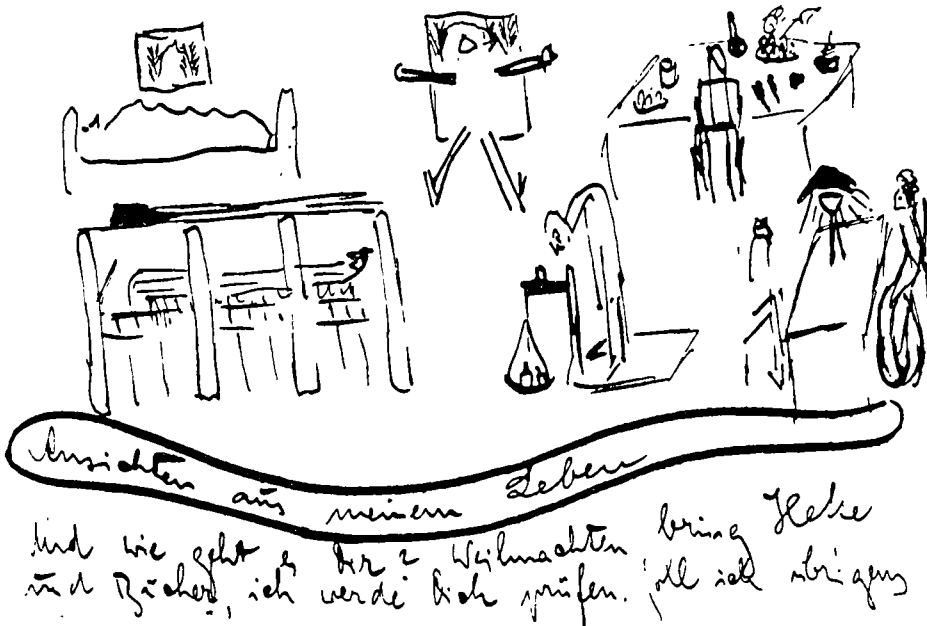 Ansichten aus meinem Leben
Und wie geht es Dir? Weihnachten bring Hefte
und Bücher, ich werde Dich prüfen. soll ich übrigens